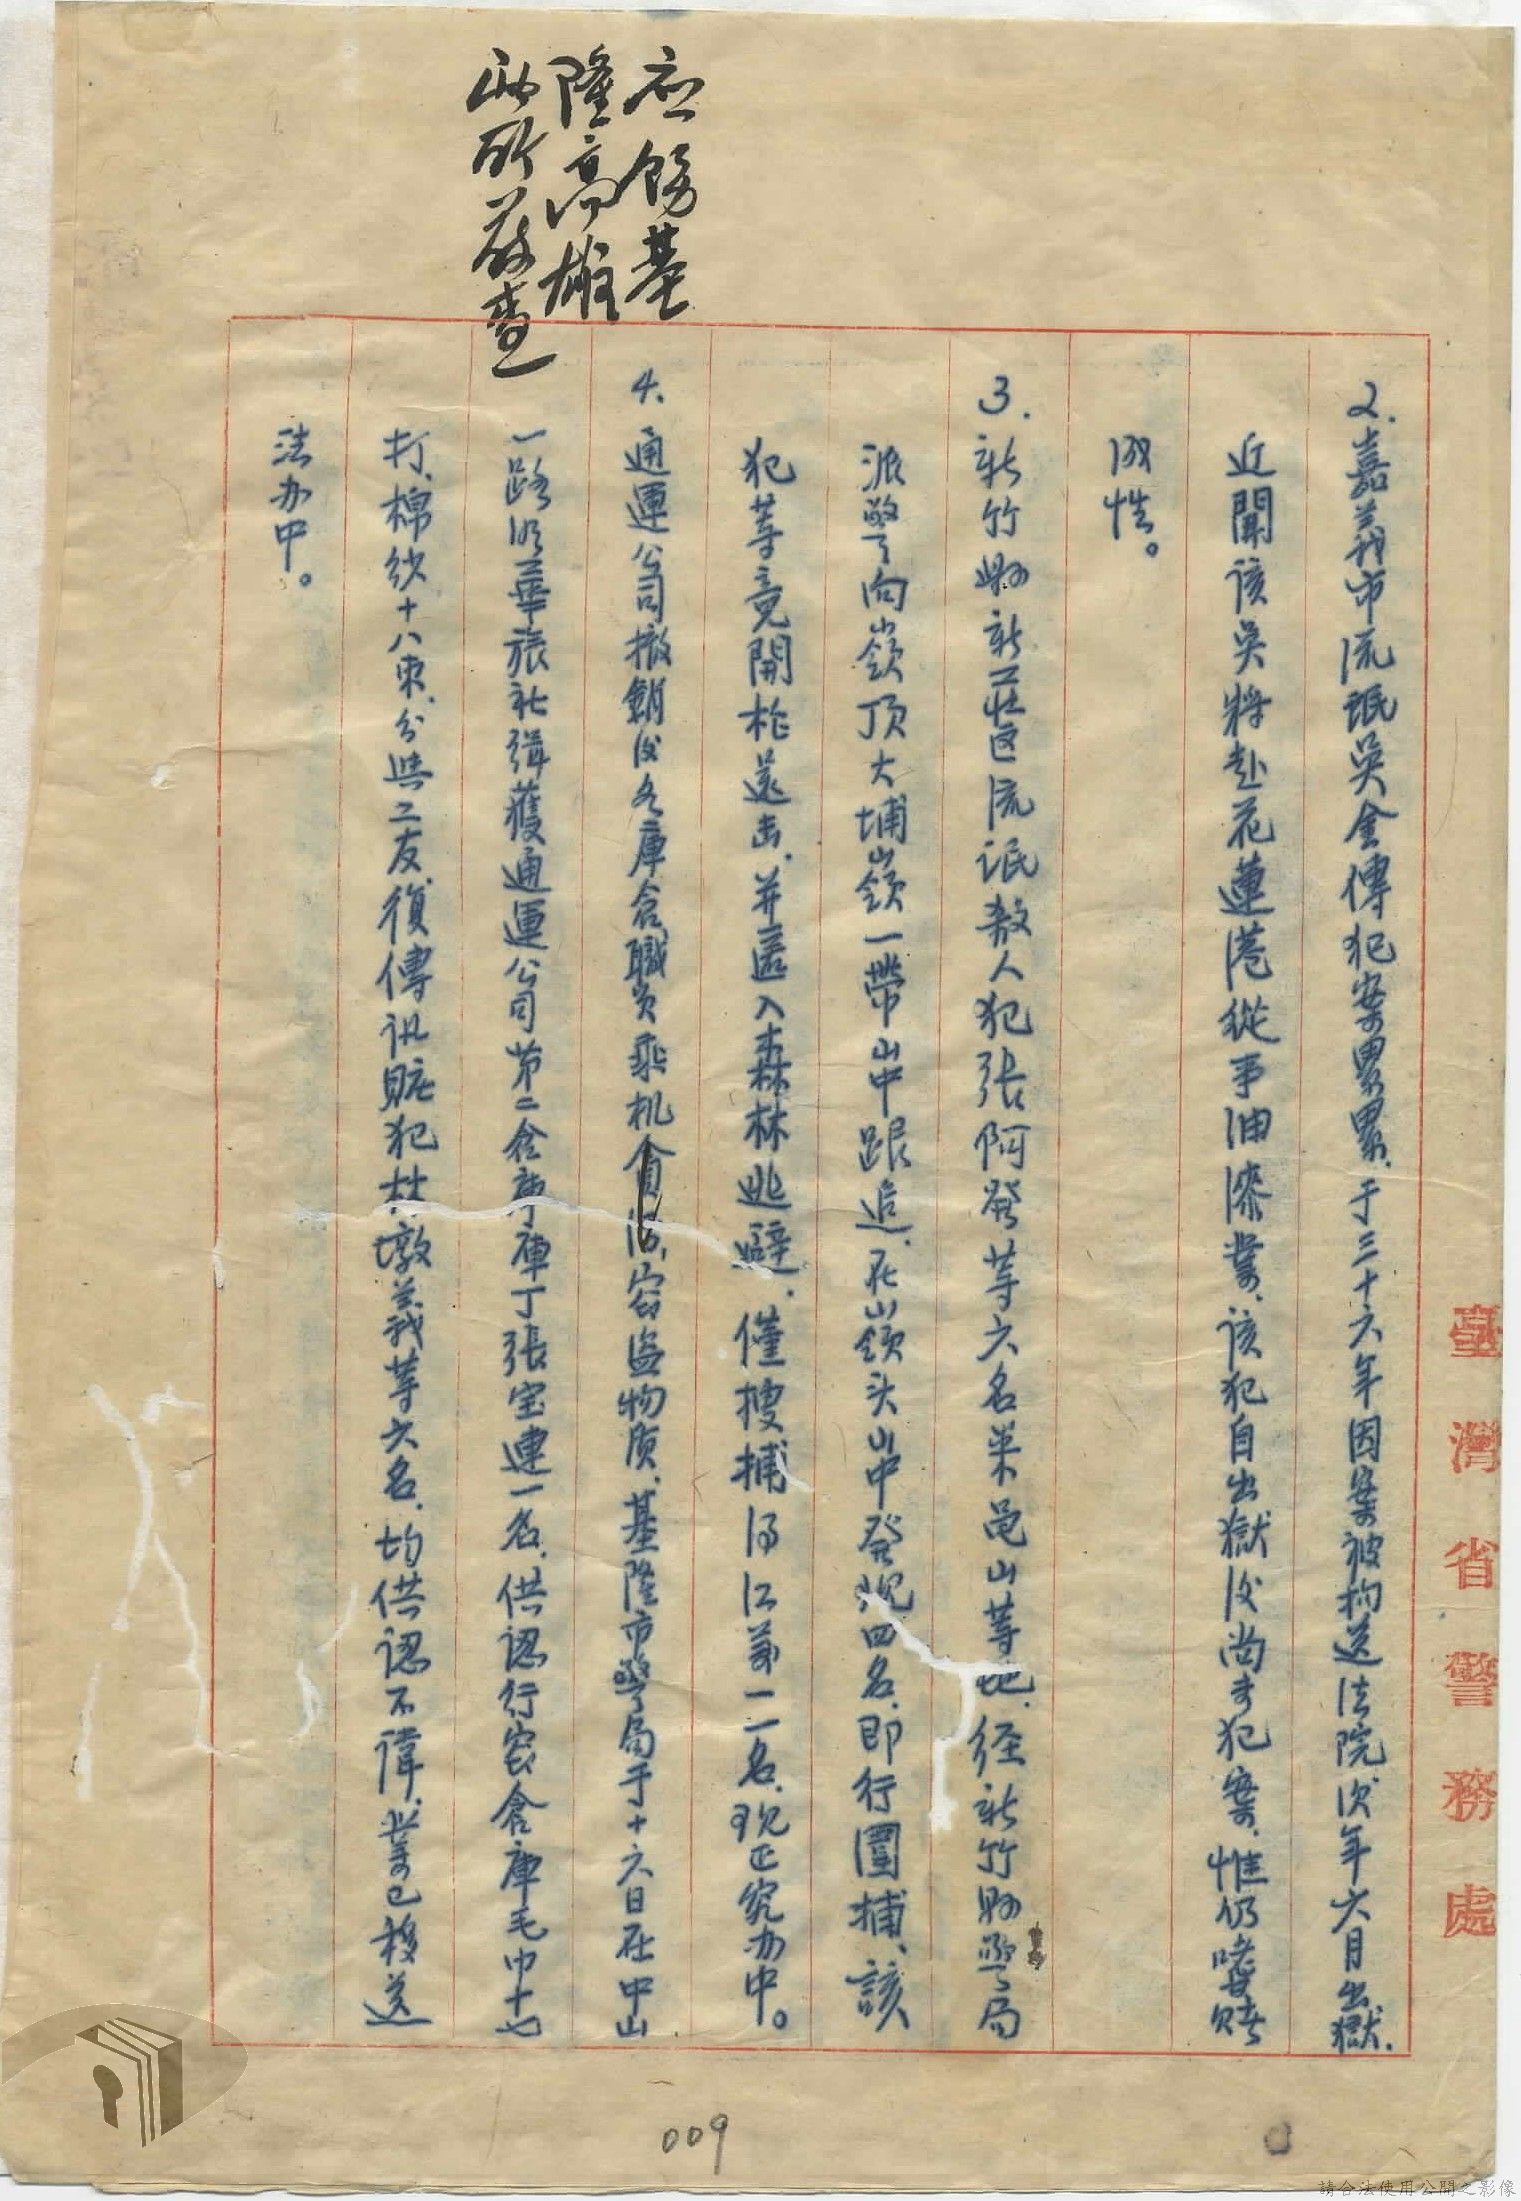 應飭基
隆高雄
兩所嚴查
2.嘉義市流氓吳金傳犯案累累、于三十六年因案被拘送法院次年六月出獄、
近聞該吳將赴花蓮港從事油漆業、該犯自出獄后尚未犯案、惟仍嗜賭
成性。
3.新竹縣新莊区流氓殺人犯張阿發等六名 山等地、经新竹縣警局
派警向嶺頂大埔嶺一帶山中跟追、在嶺头山中發現四名、即行圍捕、該
犯等竟開枪還击、并匿入森林逃避、僅搜捕得江 一名、現正究办中。
4.通運公司撤銷后各庫倉職員乘机貪污、容盜物质、基隆市警局于十六日在中山
一路 華旅社緝獲通運公司第二倉庫庫丁張宝連一名、供認行窃倉庫毛巾十七
打、棉纱十八束、分與工友、復傳訊賍犯林墩義等六名、均供認不諱、業已移送
法办中。
臺灣省警務處
009
請合法使用公開之影像